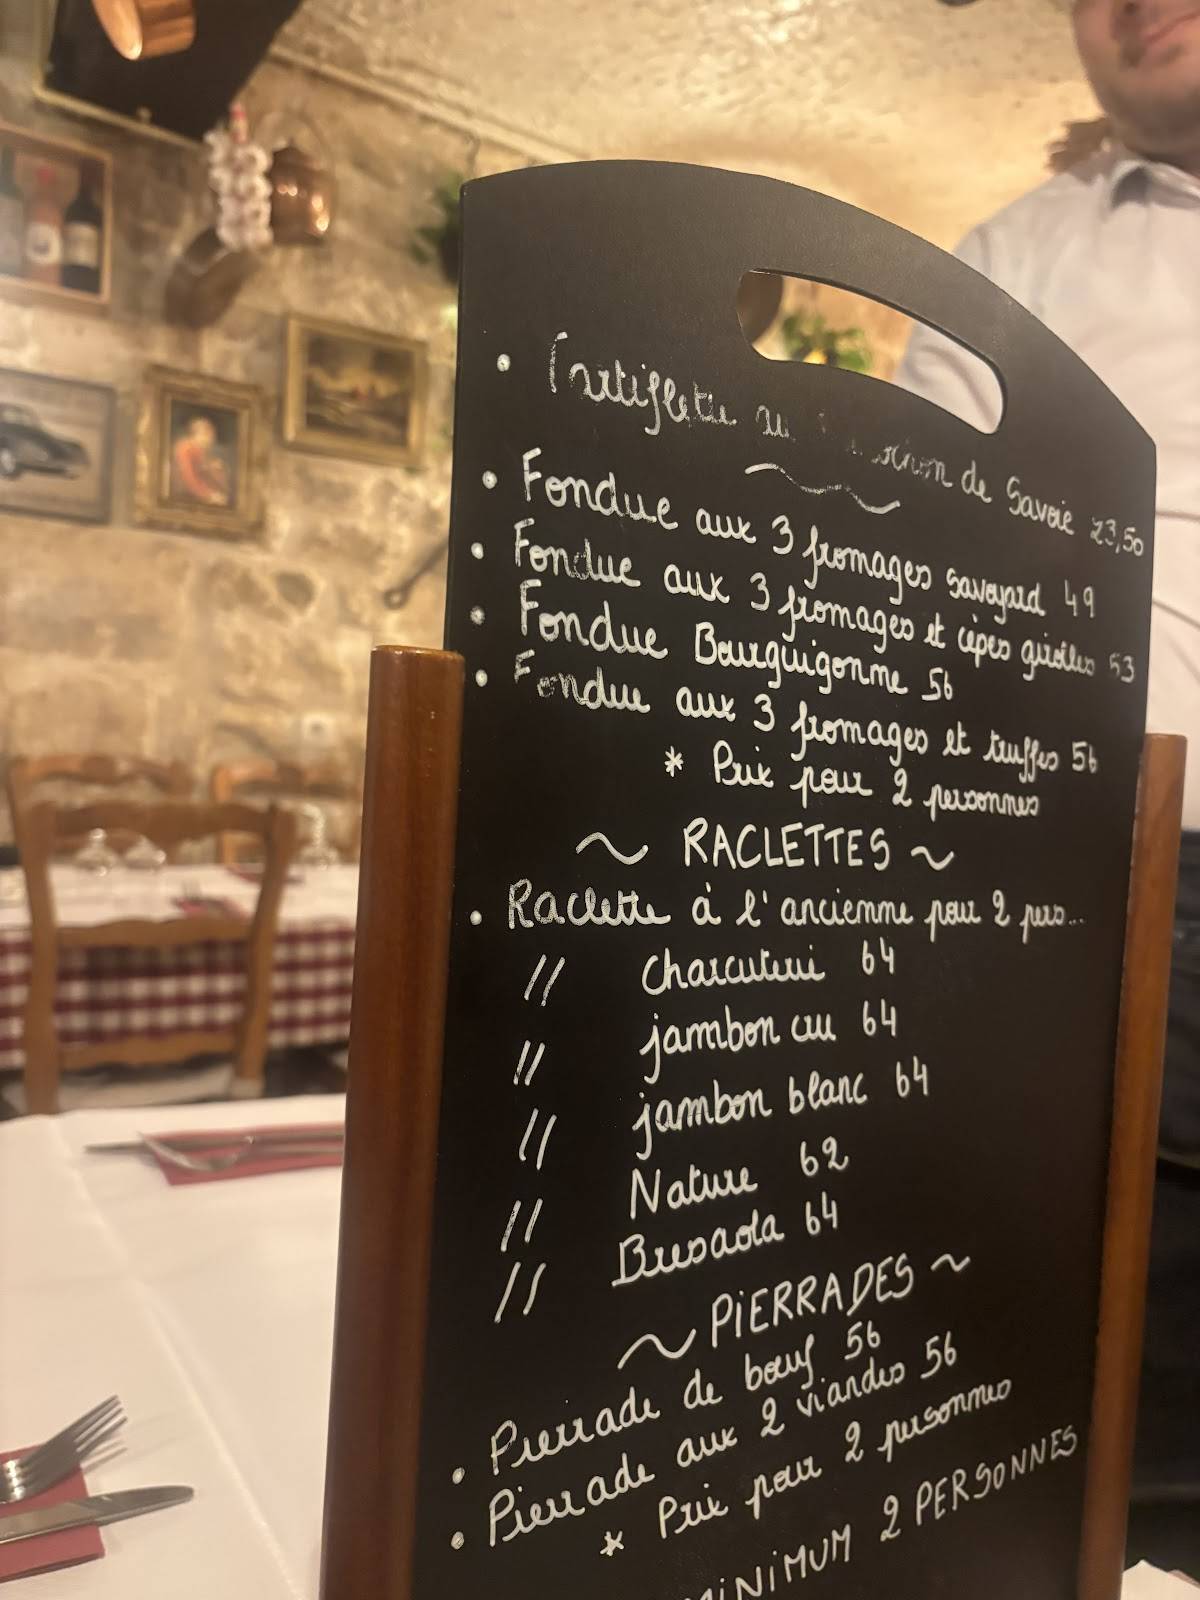 • Tartiflette au de Savoie 23,50
• Fondue aux 3 fromages savoyard 49
• Fondue aux 3 fromages et cèpes girolles 53
• Fondue Bourguigonne 56
• Fondue aux 3 fromages et truffes 56
* Prix pour 2 personnes
~ RACLETTES ~
• Raclette à l'ancienne pour 2 pers...
// Charcuterie 64
// jambon cru 64
// jambon blanc 64
// Nature 62
// Bresaola 64
~ PiERRADES ~
• Pierrade de bœuf 56
• Pierrade aux 2 viandes 56
* Prix pour 2 personnes
MiNiMUM 2 PERSONNES